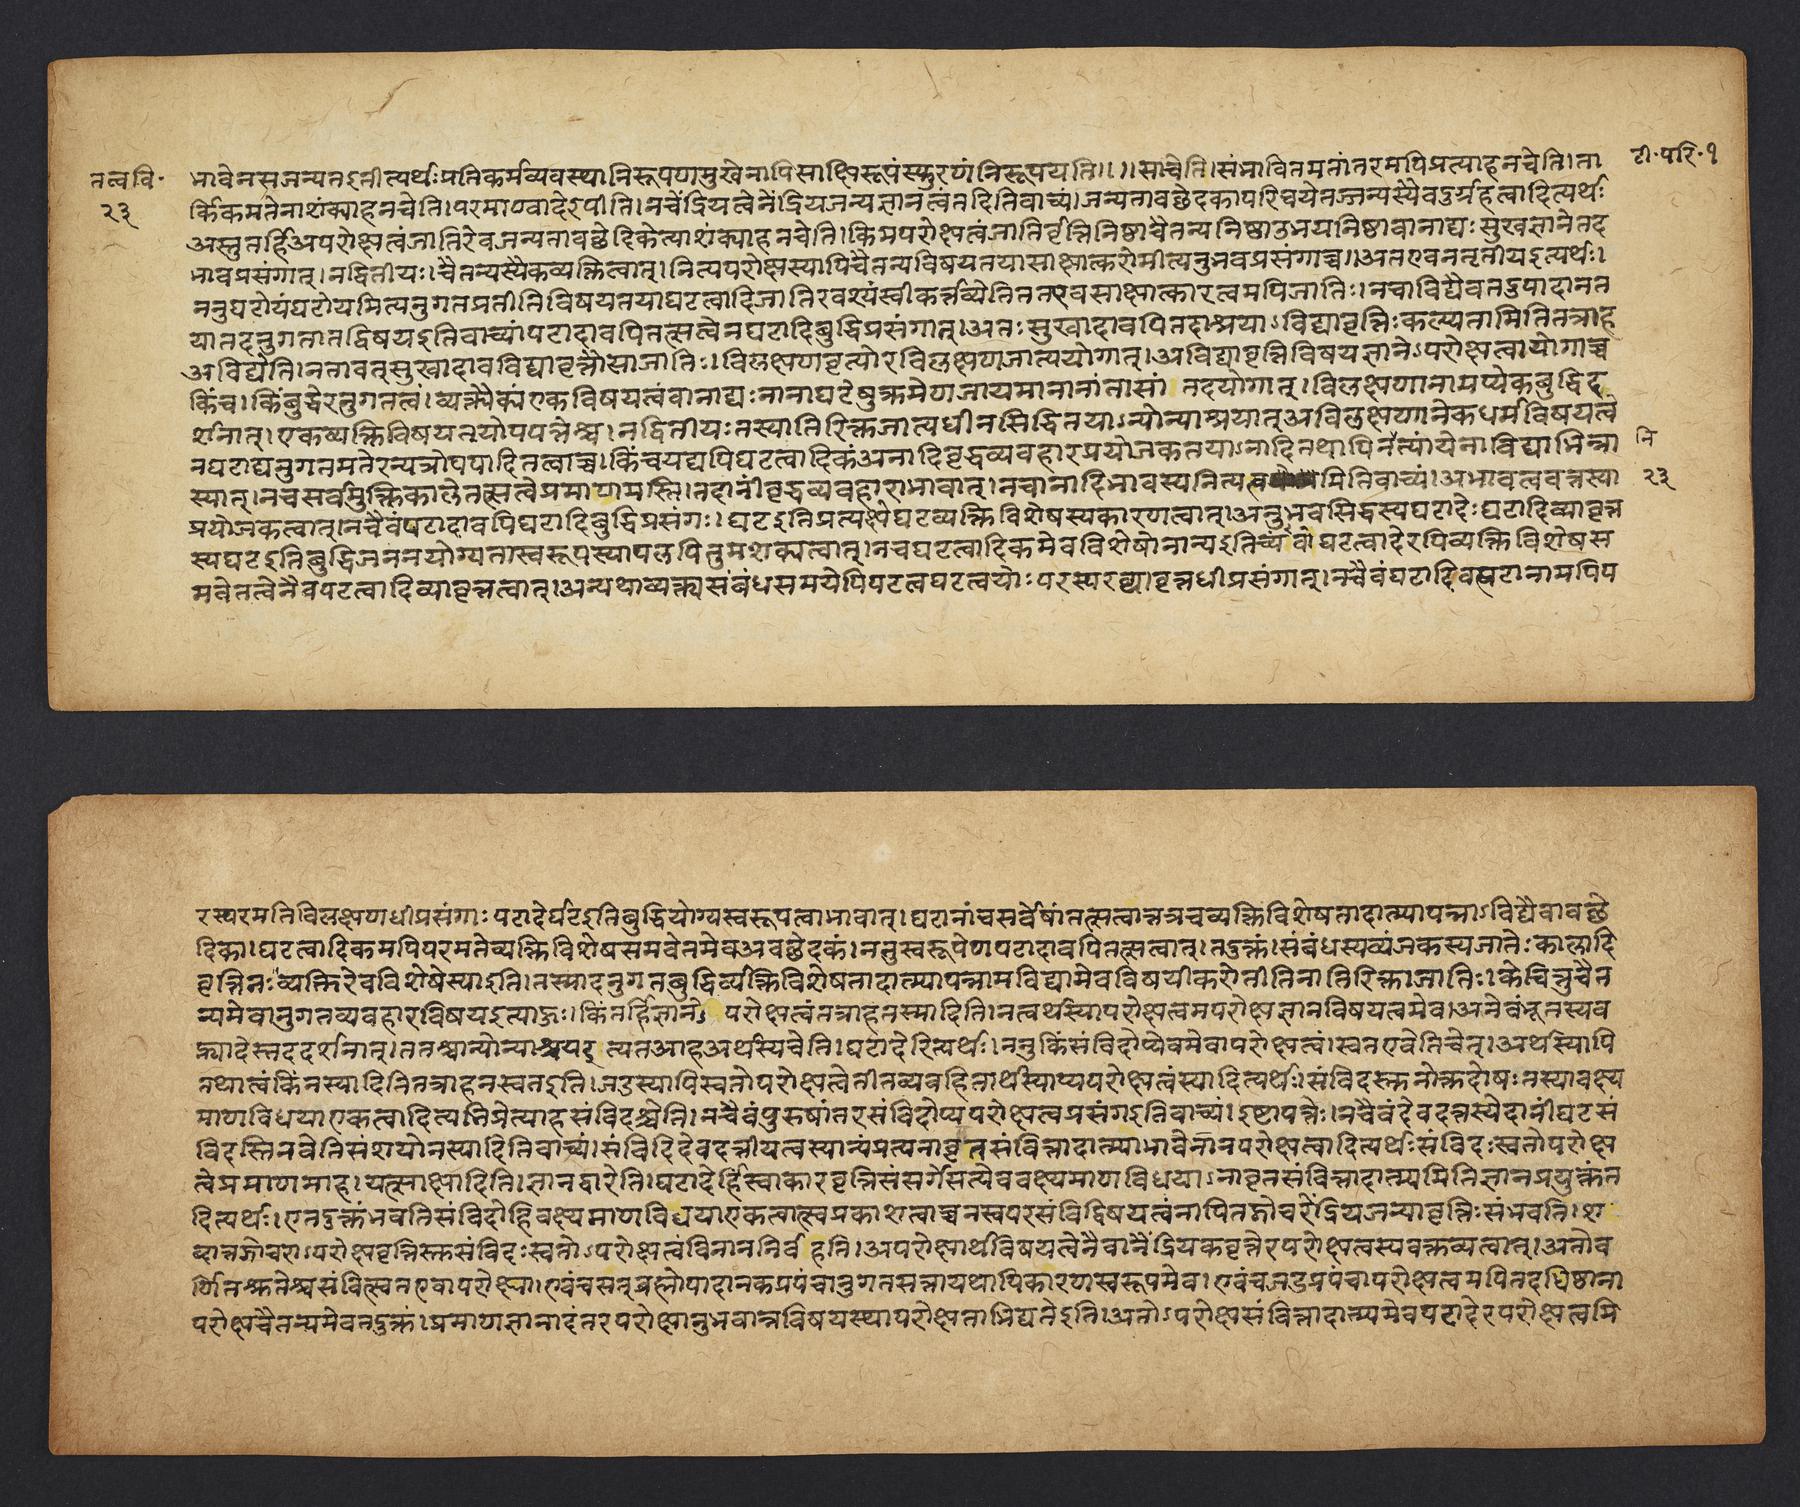 तत्ववि॰
२३
टी॰परि॰१
भावेनसजन्यतइतीत्यर्थःप्रतिकर्मव्यवस्थानिरूपणमुखेनापिसाक्षिरूपंस्फुरणंनिरूपयति।।।।साचेति।संभावितमतांतरमपिप्रत्याहनचेति।ता
र्किकमतेनाशंक्याहनचेति।परमाण्वादेरपीति।नचेंद्रियत्वेनेंद्रियजन्यज्ञानत्वंतदितिवाच्यं।जन्यतावछेदकापरिचयेतज्जन्यस्यैवदुर्ग्रहत्वादित्यर्थः
अस्तुतर्हिअपरोक्षत्वंजातिरेवजन्यतावछेदिकेत्याशंक्याहनचेति।किमपरोक्षत्वंजातिर्वृत्तिनिष्ठाचैतन्यनिष्ठाउभयनिष्ठावानाद्यःसुखज्ञानेतद
भावप्रसंगात्।नद्वितीयः।चैतन्यस्यैकव्यक्तित्वात्।नित्यपरोक्षस्यापिचैतन्यविषयतयासाक्षात्करोमीत्यनुभवप्रसंगाच्च।अतएवनतृतीयइत्यर्थः।
ननुघटोयंघटोयमित्यनुगतप्रतीतिविषयतयाघटत्वादिजातिरवश्यंस्वीकर्त्तव्येतितत्एवसाक्षात्कारत्वमपिजातिः।नचाविद्यैवतदुपादानत
यातदनुगतातद्विषयइतिवाच्यं।पटादावपितत्सत्वेनघटादिबुद्धिप्रसंगात्।अतःसुखादावपितदाश्रयाऽविद्यावृत्तिःकल्प्यतामितितत्राह
अविद्येति।नतावत्सुखादावविद्यावृत्तौसाजातिः।विलक्षणवृत्योरविलक्षणजात्ययोगात्।अविद्यावृत्तिविषयज्ञानेऽपरोक्षत्वायोगाच्च
किंच।किंबुद्धेरनुगतत्व।व्यक्त्यैक्यंएकविषयत्वंवानाद्यःनानाघटेषुक्रमेणजायमानानांतासां तदयोगात्।विलक्षणानामप्येकबुद्धिद
र्शनात्।एकव्यक्तिविषयतयोपपत्तेश्च।नद्वितीयःतस्यातिरिक्तजात्यधीनसिद्धितयाऽन्योन्याश्रयात्अविलक्षणानेकधर्मविषयत्वे
नघटाद्यनुगतमतेरन्यत्रोपपादितत्वाच्च।किंचयद्यपिघटत्वादिकंअनादिवृद्धव्यवहारप्रयोजकतयाऽनादितथापिनत्यांयेनाविद्याभिन्ना
नि
स्यात्।नचसर्वमुक्तिकालेतत्सत्वेप्रमाणमस्ति।तदानींवृद्धव्यवहाराभावात्।नचानादिभावस्यनित्यत्वमितिवाच्यं।अभावत्ववत्तस्या
२३
प्रयोजकत्वात्।नचैवंपटादावपिघटादिबुद्धिप्रसंगः।घटइतिप्रत्यक्षेघटव्यक्तिविशेषस्यकारणत्वात्।अनुभवसिद्धस्यघटादेःघटादिव्यावृत्त
स्यघटइतिबुद्धिजननयोग्यतास्वरूपस्यापलपितुमशक्यत्वात्।नचघटत्वादिकमेवविशेषोनान्यइतिवाच्यं घटत्वादेरपिव्यक्तिविशेषस
मवेतत्वेनैवपटत्वादिव्यावृत्तत्वात्।अन्यथाव्यक्त्यसंबंधसमयेपिपटत्वघटत्वयोःपरस्परव्यावृत्तधीप्रसंगात्।नचैवंघटादिवत्पटानामपिप
रस्परमतिविलक्षणधीप्रसंगाःपटादेर्घटइतिबुद्धियोग्यस्वरूपत्वाभावात्।घटानांचसर्वेषांतत्सत्वात्तत्रचव्यक्तिविशेषतादात्म्यापन्नाऽविद्यैवावछे
दिका।घटत्वादिकमपिपरमतेव्यक्तिविशेषसमवेतमेवअवछेदकं।नतुस्वरूपेणपटादावपितत्सत्वात्।तदुक्तं।संबंधस्यव्यंजकस्यजातेःकालादि
वृत्तितःव्यक्तिरेवविशेषेस्याइति।तस्मादनुगतबुद्धिर्व्यक्तिविशेषतादात्म्यापन्नामविद्यामेवविषयीकरोतीतिनातिरिक्ताजातिः।केचित्तुचैत
न्यमेवानुगतव्यवहारविषयइत्याहुः।किंतर्हिज्ञानेऽ परोक्षत्वंतत्राहतस्मादिति।नत्वर्थस्यापरोक्षत्वमपरोक्षज्ञानविषयत्वमेव।अनेवंभूतस्यव
ह्न्यादेस्तददर्शनात्।ततश्चान्योन्याश्रयइ त्यतआहअर्थस्यचेति।घटादेरित्यर्थः।ननुकिंसंविदोप्येवमेवापरोक्षत्वं।स्वतएवेतिचेत्।अर्थस्यापि
तथात्वंकिंनस्यादितितत्राहनस्वतइति।जडस्यापिस्वतोपरोक्षत्वेतीतव्यवहितार्थस्याप्यपरोक्षत्वंस्यादित्यर्थः।संविदस्तुनोक्तदोषःतस्यावक्ष्य
माणविधयाएकत्वादित्यभिप्रेत्याहसंविदश्चेति।नचैवंपुरुषांतरसंविदोप्यपरोक्षत्वप्रसंगइतिवाच्यं।इष्टापत्तेः।नचैवंदेवदत्तस्येदानींघटसं
विदस्तिनवेतिसंशयोनस्यादितिवाच्यं।संविदिदेवदत्तीयत्वस्यान्यंप्रत्यनावृतसंवित्तादात्म्याभावेनानपरोक्षत्वादित्यर्थःसंविदःस्वतोपरोक्ष
त्वेप्रमाणमाह।यत्साक्षादिति।ज्ञानद्वारेति।घटादेर्हिस्वाकारवृत्तिसंसर्गेसत्येववक्ष्यमाणविधयाऽनावृतसंवित्तादात्म्यमितिज्ञानप्रयुक्तंत
दित्यर्थः।एतदुक्तंभवतिसंविदोहिवक्ष्यमाणविधयाएकत्वात्स्वप्रकाशत्वाच्चनस्वपरसंविद्विषयत्वंनापितद्गोचरेंद्रियजन्यावृत्तिःसंभवति।श
ब्दात्तद्गोचराऽपरोक्षवृत्तिस्तुसंविदःस्वतोऽपरोक्षत्वंविनाननिर्व हति।अपरोक्षार्थविषयत्वेनैवानैंद्रियकवृत्तेरपरोक्षत्वस्यवक्तव्यत्वात्।अतोव
र्णितश्रुतेश्चसंवित्स्वतएवापरोक्षा।एवंचसत्ब्रह्मोपादानकप्रपंचानुगतसत्तायथापिकारणस्वरूपमेव।एवंचजडप्रपंचापरोक्षत्वमपितदधिष्ठाना
परोक्षचैतन्यमेवतदुक्तं।प्रमाणज्ञानादंतरपरोक्षानुभवान्नविषयस्थापरोक्षताभिद्यतेइति।अतोऽपरोक्षसंवित्तादात्म्यमेवघटादेरपरोक्षत्वमि